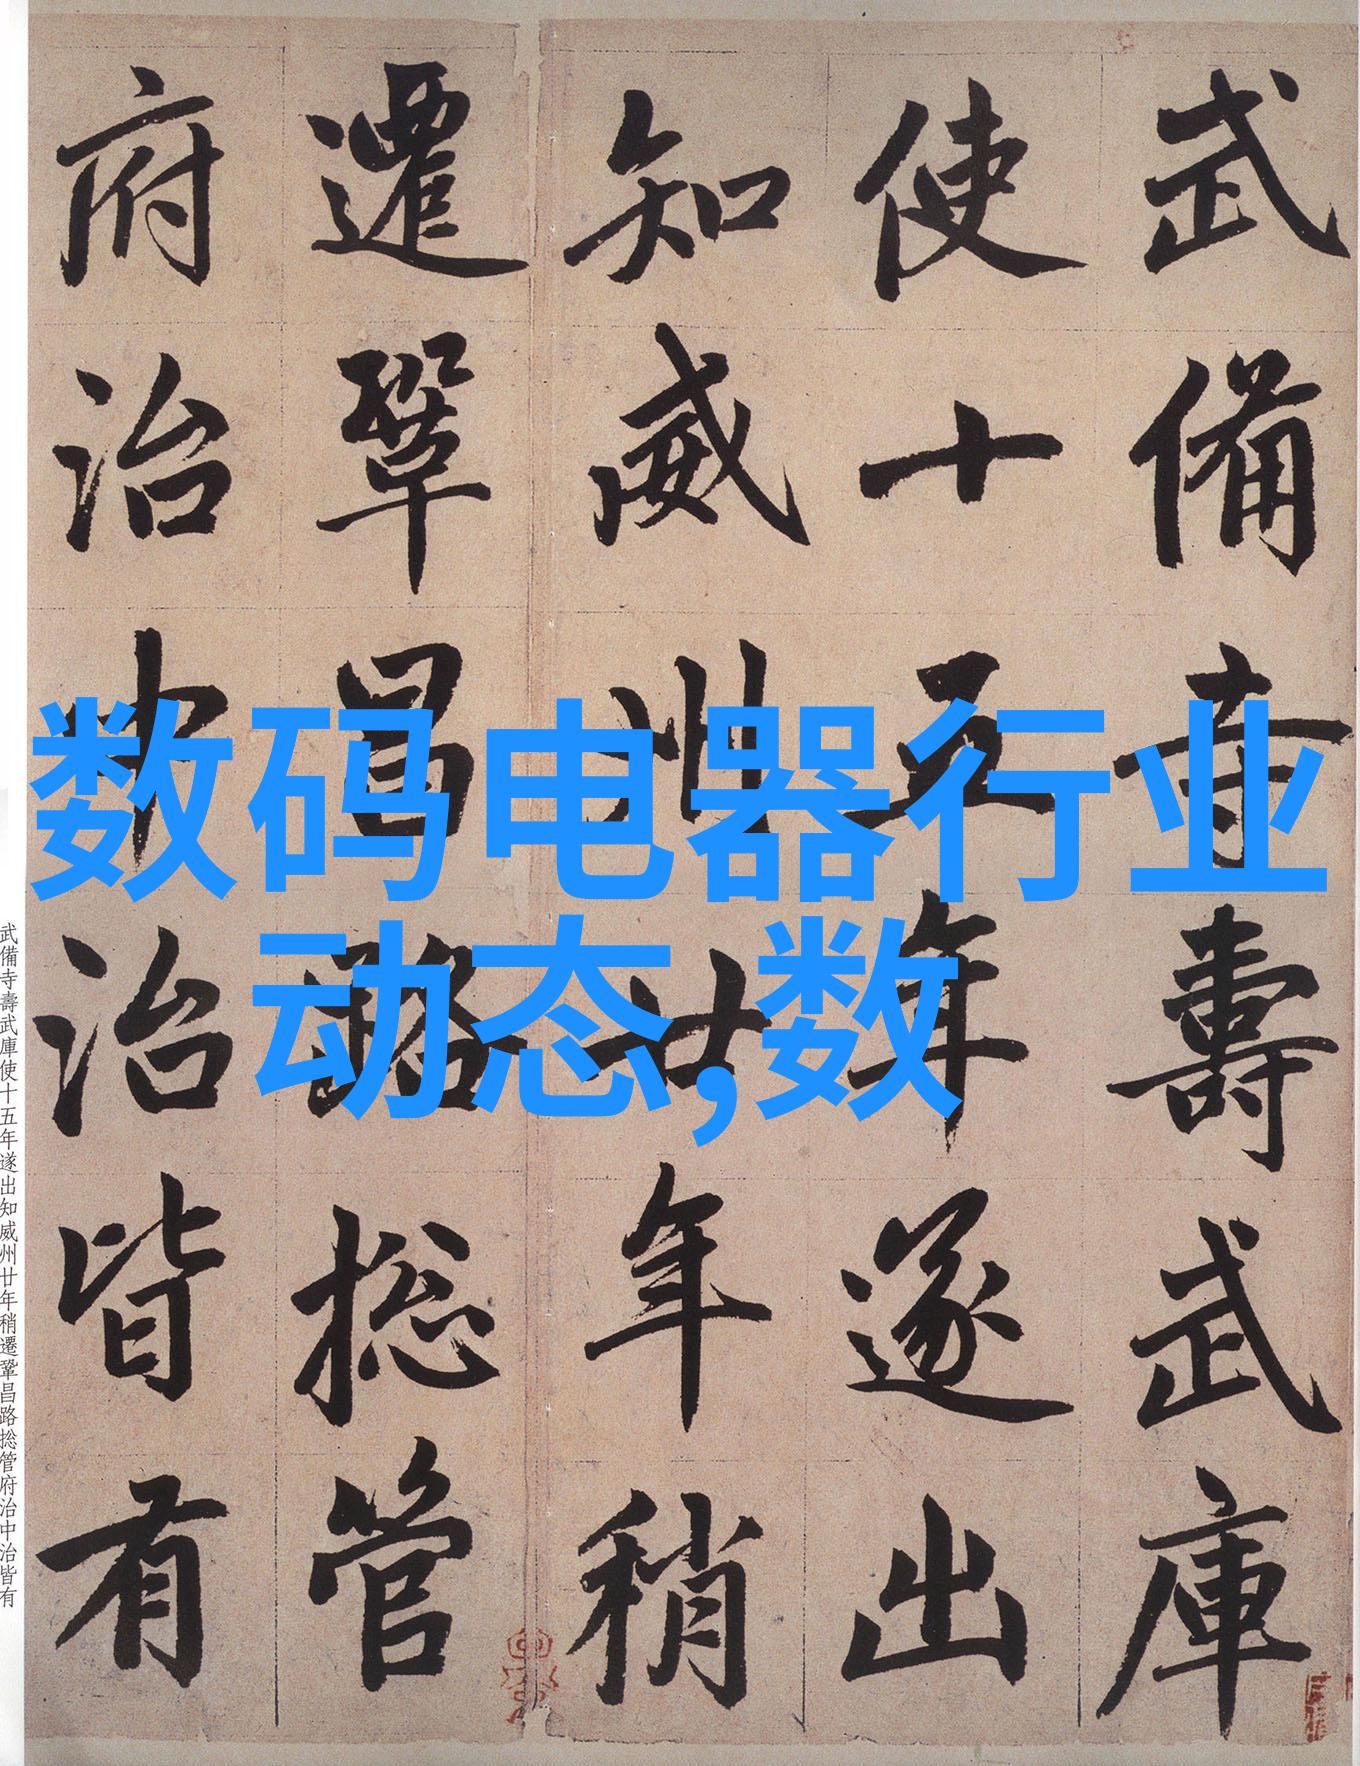 武備寺壽武庫
使十五年遂出
知威州廿年稍
遷鞏昌路総管
府治中治皆有
数码电器行业
动态,数
武備寺壽武庫使十五年遂出知威州廿年稍遷鞏昌路捴管府治中治皆有